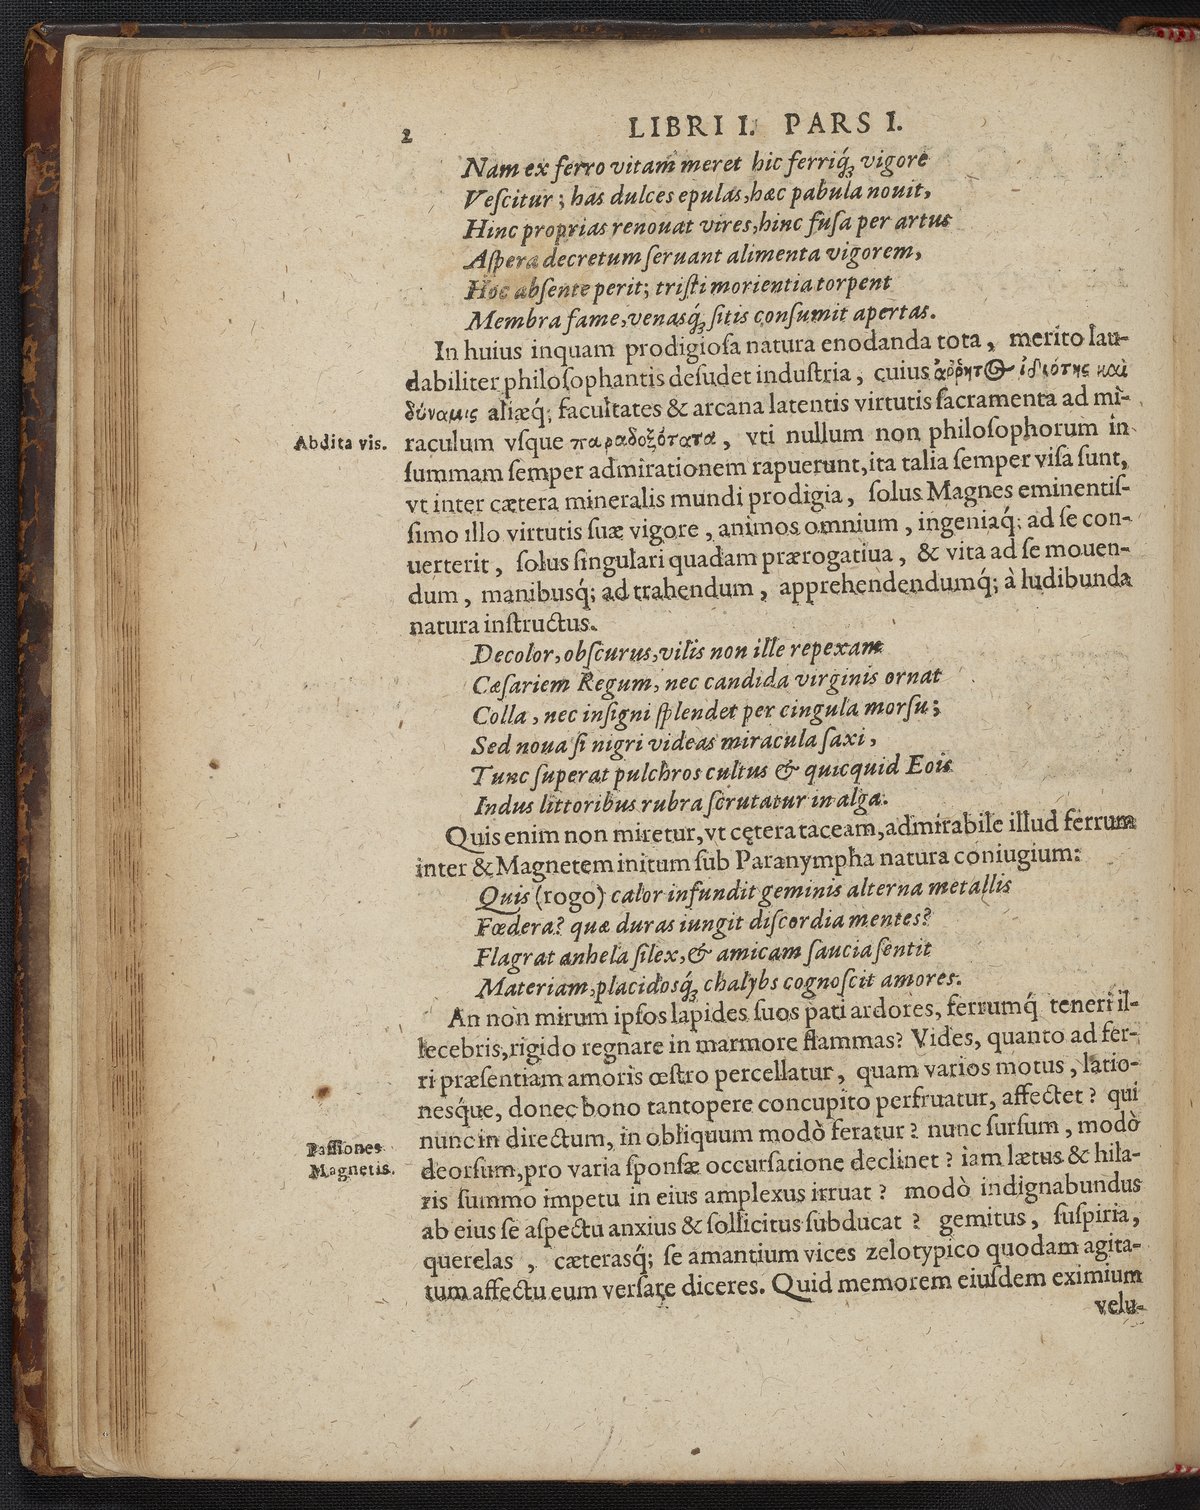 2 LIBRI I. PARS I.
Nam ex ferro vitam meret hic ferriq́ꝫ vigore
Veſcitur; has dulces epulas, hæc pabula nouit,
Hinc proprias renouat vires, hinc fuſa per artus
Aſpera decretum ſeruant alimenta vigorem,
Hoc abſente perit; triſti morientia torpent
Membra fame, venasq́ꝫ ſitis conſumit apertas.
In huius inquam prodigioſa natura enodanda tota, merito lau-
dabiliter philoſophantis deſudet induſtria, cuius ἄῤῥητος ἰδιότης καὶ
δύναμις aliæq́; facultates & arcana latentis virtutis ſacramenta ad mi-
Abdita vis.
raculum vſque παραδοξότατα, vti nullum non philoſophorum in
ſummam ſemper admirationem rapuerunt, ita talia ſemper viſa ſunt,
vt inter cætera mineralis mundi prodigia, ſolus Magnes eminentiſ-
ſimo illo virtutis ſuæ vigore, animos omnium, ingeniaq́; ad ſe con-
uerterit, ſolus ſingulari quadam prærogatiua, & vita ad ſe mouen-
dum, manibusq́; ad trahendum, apprehendendumq́; à ludibunda
natura inſtructus.
Decolor, obſcurus, vilis non ille repexam
Cæſariem Regum, nec candida virginis ornat
Colla, nec inſigni ſplendet per cingula morſu;
Sed noua ſi nigri videas miracula ſaxi,
Tunc ſuperat pulchros cultus & quicquid Eois
Indus littoribus rubra ſcrutatur in alga.
Quis enim non miretur, vt cętera taceam, admirabile illud ferrum
inter & Magnetem initum ſub Paranympha natura coniugium:
Quis (rogo) calor infundit geminis alterna metallis
Fœdera? quæ duras iungit diſcordia mentes?
Flagrat anhela ſilex, & amicam ſaucia ſentit
Materiam, placidosq́ꝫ chalybs cognoſcit amores.
An non mirum ipſos lapides ſuos pati ardores, ferrumq́ teneri il-
lecebris, rigido regnare in marmore flammas? Vides, quanto ad fer-
ri præſentiam amoris œſtro percellatur, quam varios motus, latio-
nesq́ue, donec bono tantopere concupito perfruatur, affectet? qui
nunc in directum, in obliquum modò feratur? nunc ſurſum, modò
Paſſiones
Magnetis.
deorſum, pro varia ſponſæ occurſatione declinet? iam lætus & hila-
ris ſummo impetu in eius amplexus irruat? modò indignabundus
ab eius ſe aſpectu anxius & ſollicitus ſubducat? gemitus, ſuſpiria,
querelas, cæterasq́; ſe amantium vices zelotypico quodam agita-
tum affectu eum verſare diceres. Quid memorem eiuſdem eximium
velu-